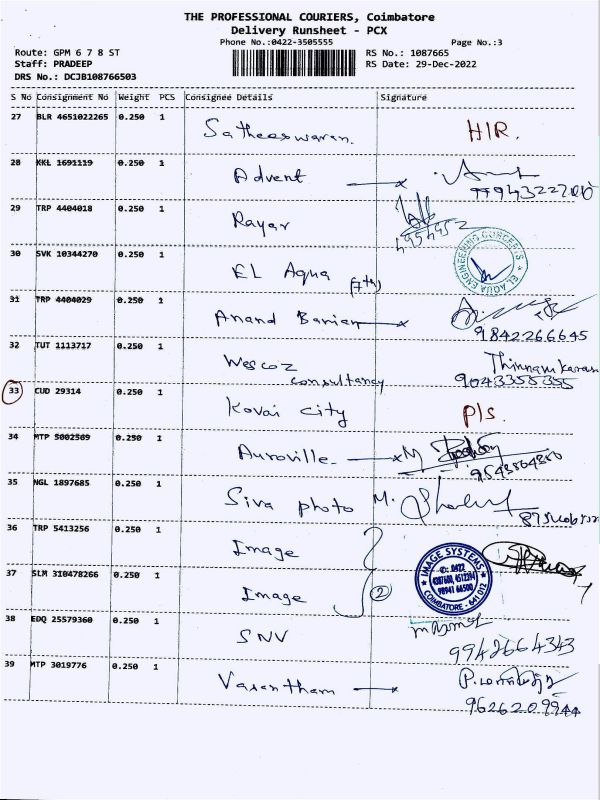 THE PROFESSIONAL COURIERS, Coimbatore
Delivery Runsheet - PCX
Phone No.:0422-3505555 Page No.:3
Route: GPM 6 7 8 ST RS No.: 1087665
Staff: PRADEEP RS Date: 29-Dec-2022
DRS No.: DCJB108766503
S No Consignment No Weight PCS Consignee Details Signature
27 BLR 4651022265 0.250 1 Satheeswaran. H/R.
28 KKL 1691119 0.250 1 Advent
29 TRP 4404018 0.250 1 Rayar
30 SVK 10344270 0.250 1 EL Aqua (7th) EL AQUA ENGINEERING CONCEPTS
31 TRP 4404029 0.250 1 Anand
9842266645
32 TUT 1113717 0.250 1 Wescoz
consultancy 9043355355
33 CUD 29314 0.250 1 Kovai city P/S.
34 MTP 5002509 0.250 1 Auroville.
35 NGL 1897685 0.250 1 Siva photo M.
36 TRP 5413256 0.250 1 Image
37 SLM 310478266 0.250 1 Image 2
IMAGE SYSTEMS
✆: 0422
4387600, 4512294
98941 66500
COIMBATORE - 641 012
38 EDQ 25579360 0.250 1 SNV
9942664343
39 MTP 3019776 0.250 1 Vasantham
9626209944